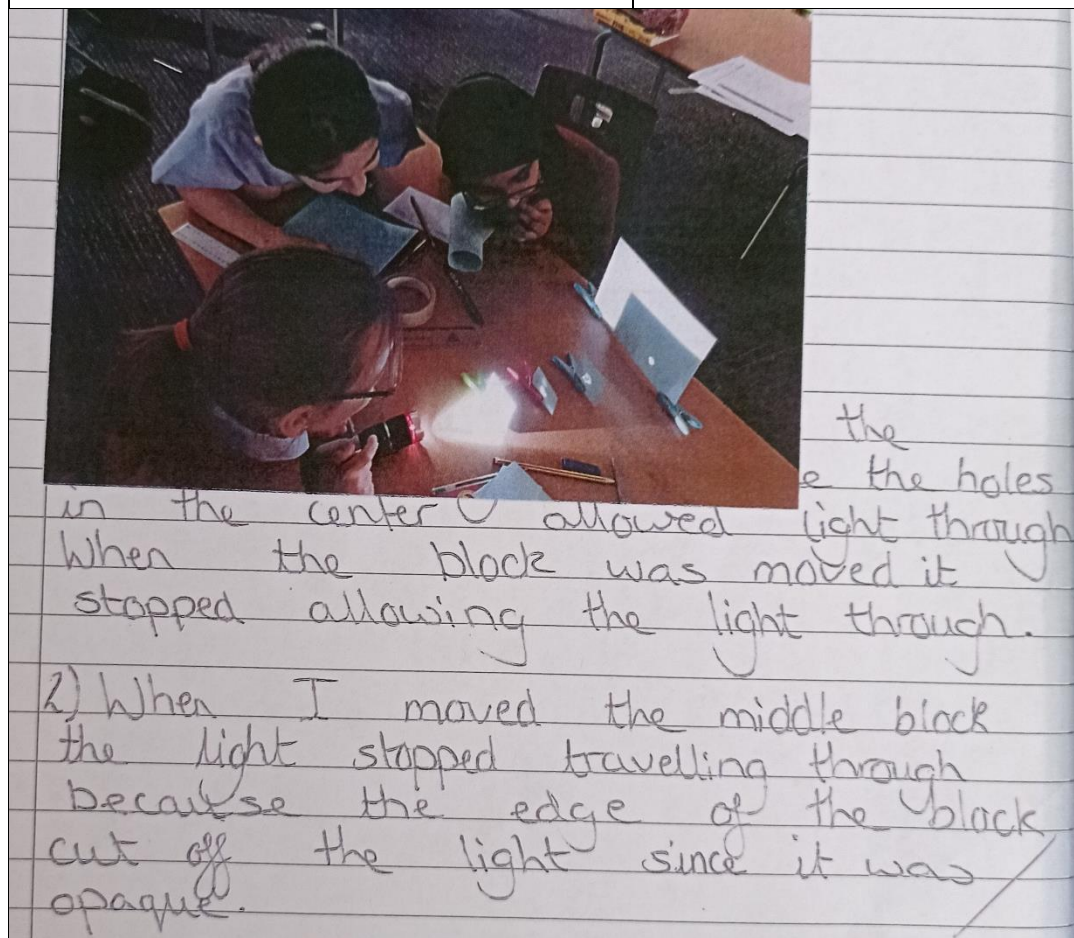 the
e the holes
in the center allowed light through
When the block was moved it
stopped allowing the light through.
2) When I moved the middle block
the light stopped travelling through
because the edge of the block
cut off the light since it was
opaque.